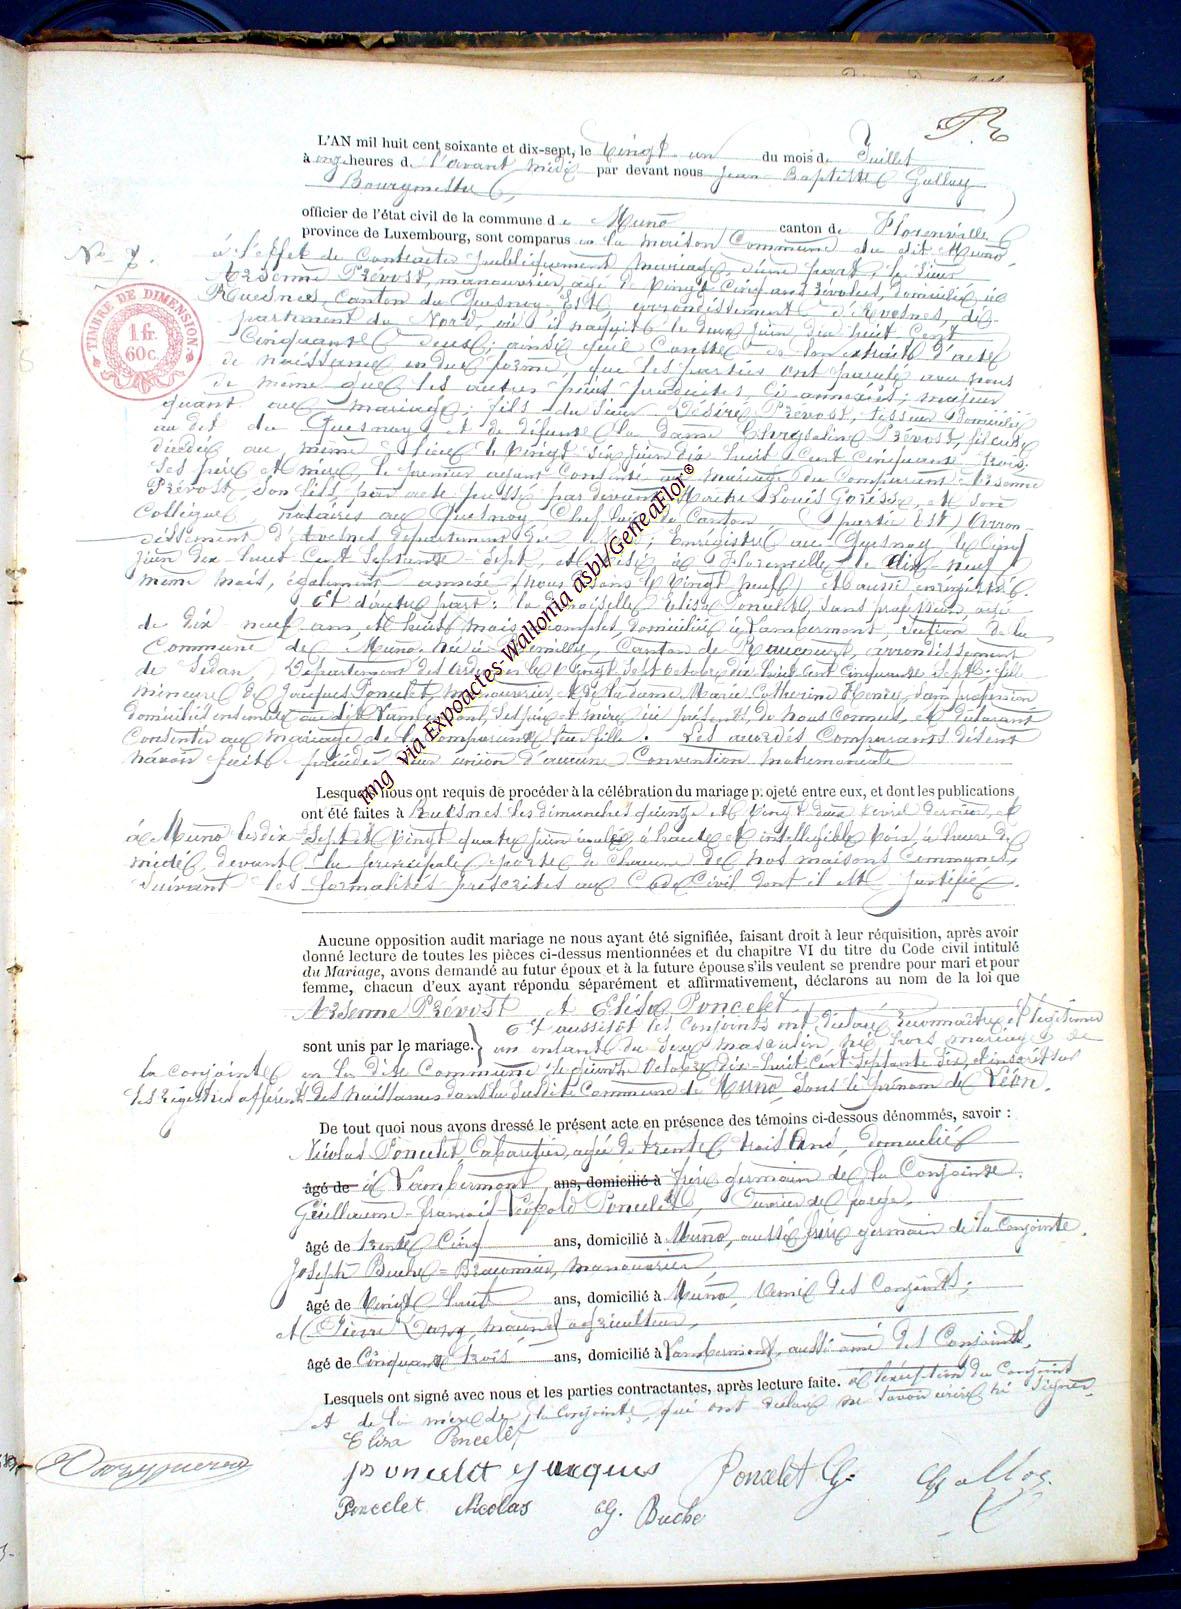 L'AN mil huit cent soixante et dix-sept, le vingt-un du mois de Juillet
à onze heures de l'avant midi par devant nous Jean-Baptiste Gallay
Bourgmestre
officier de l'état civil de la commune de Muno canton de Florenville
province de Luxembourg, sont comparus en la maison Commune du dit Muno
No 7. à l'effet de Contracter publiquement mariage, d'une part, le sieur
TIMBRE DE DIMENSION.
1 fr.
60 c.
Arsenne Prévost, manouvrier, agé de vingt Cinq ans révolus, domicilié à
Ruesnes, Canton du Quesnoy-Est, arrondissement d'Avesnes, dé-
partement du Nord, où il naquit le deux Juin dix huit Cent
Cinquante deux; ainsi qu'il Conste de son extrait d'acte
de naissance en due forme, que les parties ont paraphé avec nous
de même que les autres pièces produites, ci-annexées; majeur
quant au mariage; fils du sieur Désiré Prévost, tisseur domicilié
au dit du Quesnoy et de défunte la dame Prévost, fileuse
décédée au même lieu le vingt six Juin dix huit cent cinquante trois.
Ses père et mère, le premier ayant Consenti au mariage du Comparant Arsenne
Prévost son fils, par acte passé par devant Maître Louis et son
Collègue, notaires au Quesnoy, Chef lieu de Canton (partie Est) Arron-
dissement d'Avesnes département du Nord; Enregistré au Quesnoy, le Cinq
Juin dix huit Cent Septante-Sept, et visé à Florenville le dix-neuf
même mois, également annexé (nous sous le vingt neuf) et aussi enregistré.
Et d'autre part: la demoiselle Elisa Poncelet, sans profession, agée
de dix neuf ans et huit mois complets, domiciliée à Lambermont, section de la
Commune de Muno née à Remilly, Canton de Raucourt, arrondissement
de Sedan, Département des Ardennes le vingt Sept octobre dix huit Cent Cinquante Sept; fille
mineure de Jacques Poncelet, manouvrier, et de la dame Marie-Catherine sans profession
domiciliés ensemble au dit Lambermont, ses père et mère ici présents, de nous Connus, et déclarant
Consentir au mariage de la Comparante leur fille. Les susdits Comparants disent
n'avoir fait précéder leur union d'aucune Convention matrimoniale
Lesquels nous ont requis de procéder à la célébration du mariage projeté entre eux, et dont les publications
ont été faites à Ruesnes les dimanches quinze et vingt deux avril dernier, et
à Muno les dix-Sept et vingt quatre Juin à haute et intelligible voix, à l'heure de
midi, devant la principale porte de Chacune de nos maisons Communes,
Suivant les formalités prescrites au Code Civil dont il est Justifié.
Aucune opposition audit mariage ne nous ayant été signifiée, faisant droit à leur réquisition, après avoir
donné lecture de toutes les pièces ci-dessus mentionnées et du chapitre VI du titre du Code civil intitulé
du Mariage, avons demandé au futur époux et à la future épouse s'ils veulent se prendre pour mari et pour
femme, chacun d'eux ayant répondu séparément et affirmativement, déclarons au nom de la loi que
Arsenne Prévost et Elisa Poncelet
sont unis par le mariage. } Et aussitôt les conjoints ont déclaré reconnaître et légitimer
un enfant du sexe masculin né hors mariage de
la conjointe en la dite Commune le Octobre dix-huit Cent Septante Six et inscrit sur
les registres afférents des naissances dans la susdite Commune de Muno, sous le prénom de Léon.
De tout quoi nous avons dressé le présent acte en présence des témoins ci-dessous dénommés, savoir :
Nicolas Poncelet Cabaretier, agé de trente trois ans, domicilié
âgé de à Lambermont ans, domicilié à frère germain de la Conjointe.
Guillaume-François-Léopold Poncelet, Ouvrier de forge,
âgé de trente Cinq ans, domicilié à Muno, aussi frère germain de la Conjointe.
Joseph Buche-Braconnier, manouvrier,
âgé de Vingt huit ans, domicilié à Muno, ami des Conjoints;
et Pierre agriculteur,
âgé de Cinquante trois ans, domicilié à Lambermont, aussi ami des Conjoints.
Lesquels ont signé avec nous et les parties contractantes, après lecture faite. à l'exception du Conjoint
et de la mère de la Conjointe, qui ont déclaré ne savoir écrire ni Signer.
Eliza Poncelet
Poncelet Jacques Poncelet G. Gallay
Poncelet Nicolas G. Buche
img via Expoactes-Wallonia asbl/GeneaFlor®